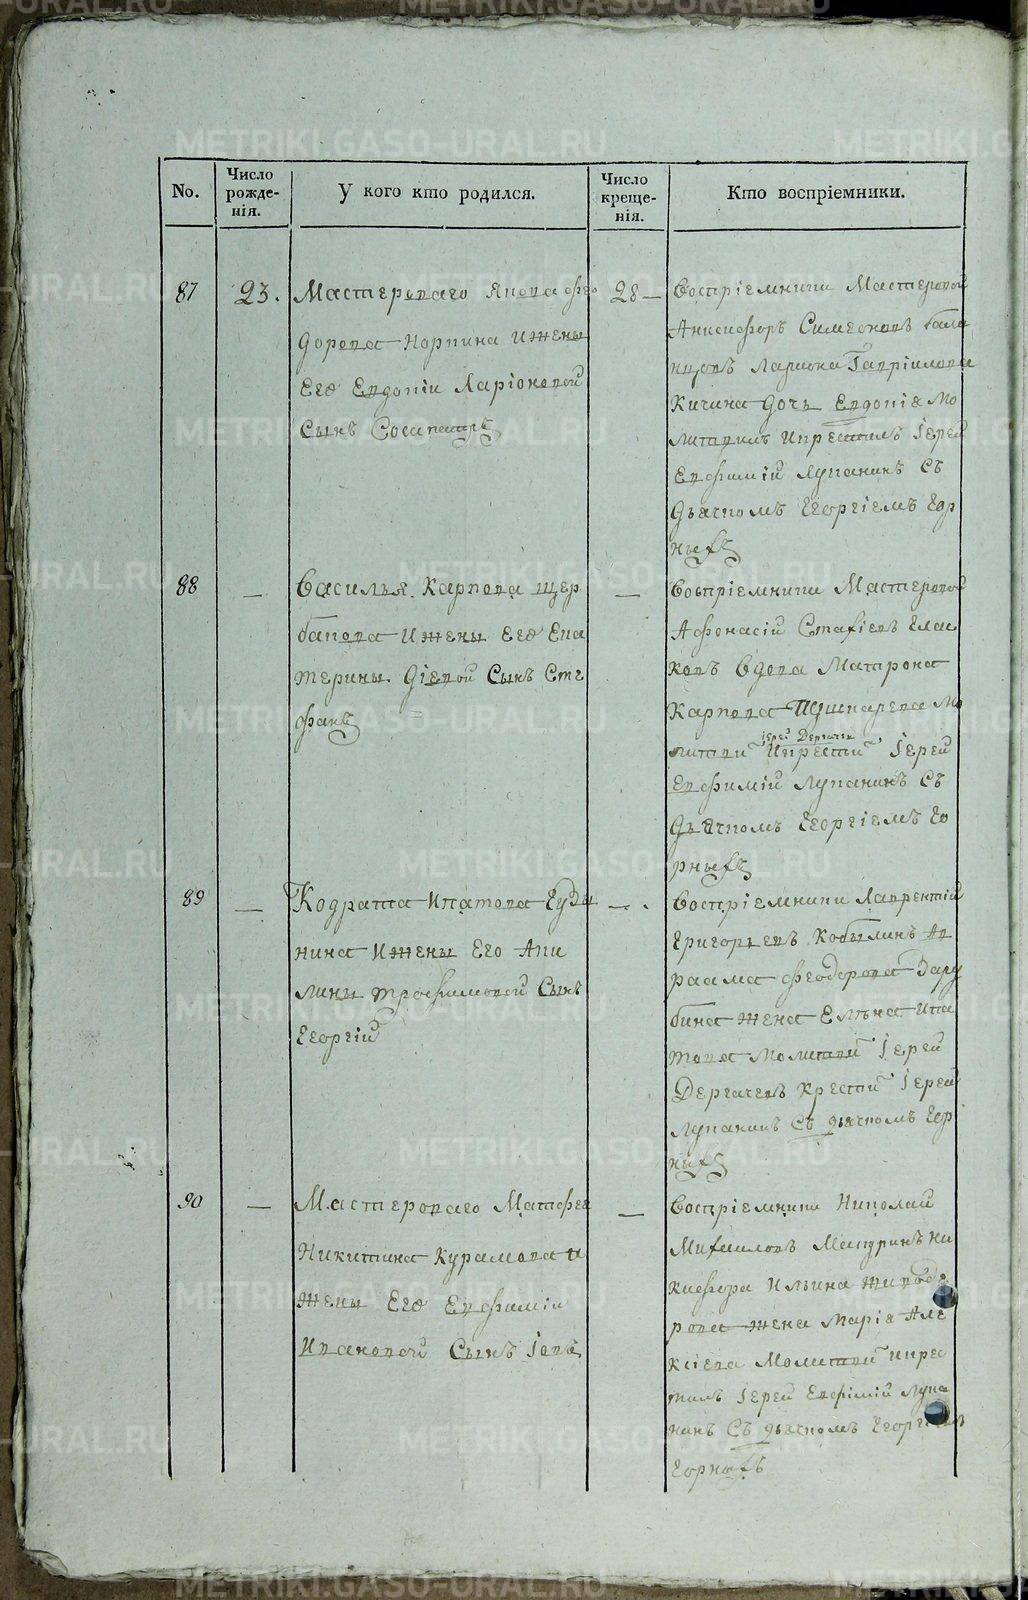 No.
Число рожде-нія.
У кого кто родился.
Число креще-нія.
Кто воспріемники.
87
23.
Мастероваго Якова Фео
дорова Норкина и жены
Его Евдокіи Ларіоновой
Сынъ Сосипатръ
28
Воспріемники Мастеровой
Анисифоръ Симеоновъ
Лариона Гавриилова
Кичина дочь Евдокія Мо
литвилъ и крестилъ Іерей
Евфимій Лупанинъ съ
дьячкомъ Георгіемъ Гор
ныхъ
88
—
Василья Карпова Щер
бакова и жены Его Ека
терины Діевой Сынъ Сте
фанъ
—
Воспріемники Мастеровой
Афонасій Стахіевъ Глас
ковъ вдова Матрона
Карпова Мо
Іерей Дергачев
литвилъ и крестилъ Іерей
Евфимій Лупанинъ съ
Дьячкомъ Георгіемъ Го
рныхъ
89
—
Кодрата Ипатова Гуды
нина и жены Его Аки
лины Трофимовой Сынъ
Георгій
—
Воспріемники Лаврентій
Григорьевъ Кобылинъ Ав
раама Феодорова Зару
бина жена Елѣна Ипа
това молитвилъ Іерей
Дергачевъ крестилъ Іерей
Лупанинъ съ дьячкомъ Гор
ныхъ
90
—
Мастероваго Матфея
Никитина Курамова и
жены Его Евфиміи
Ивановой Сынъ Іовъ
—
Воспріемники Николай
Михаиловъ Мичуринъ Ни
кифора Ильина
рова жена Марія Але
ксіева молитвилъ и крес
тилъ Іерей Евфимій Лупа
нинъ съ дьячкомъ Георгіемъ
Горныхъ
METRIKI.GASO-URAL.RU